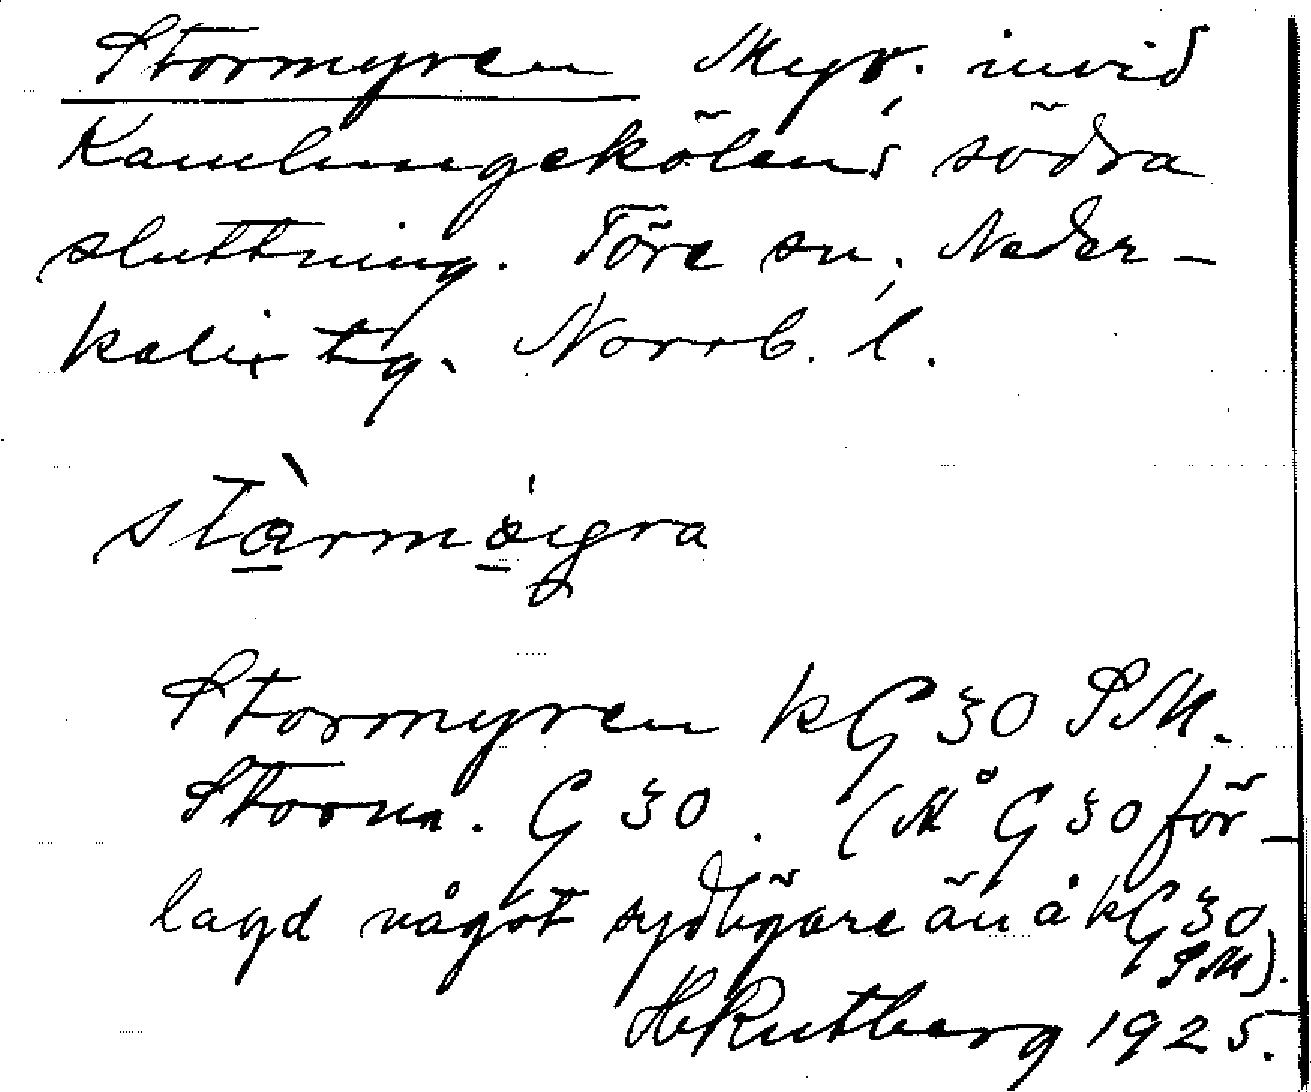 Stormyren Myr. invid
Kamlungekölens södra
sluttning. Töre sn, Neder-
kalix tg. Norrb. l.
stàrmǿigra
Stormyren kG 30 SM.
Storm. G 30. (Å G 30 för-
lagd något sydligare än å kG 30
SM).
H Rutberg 1925.